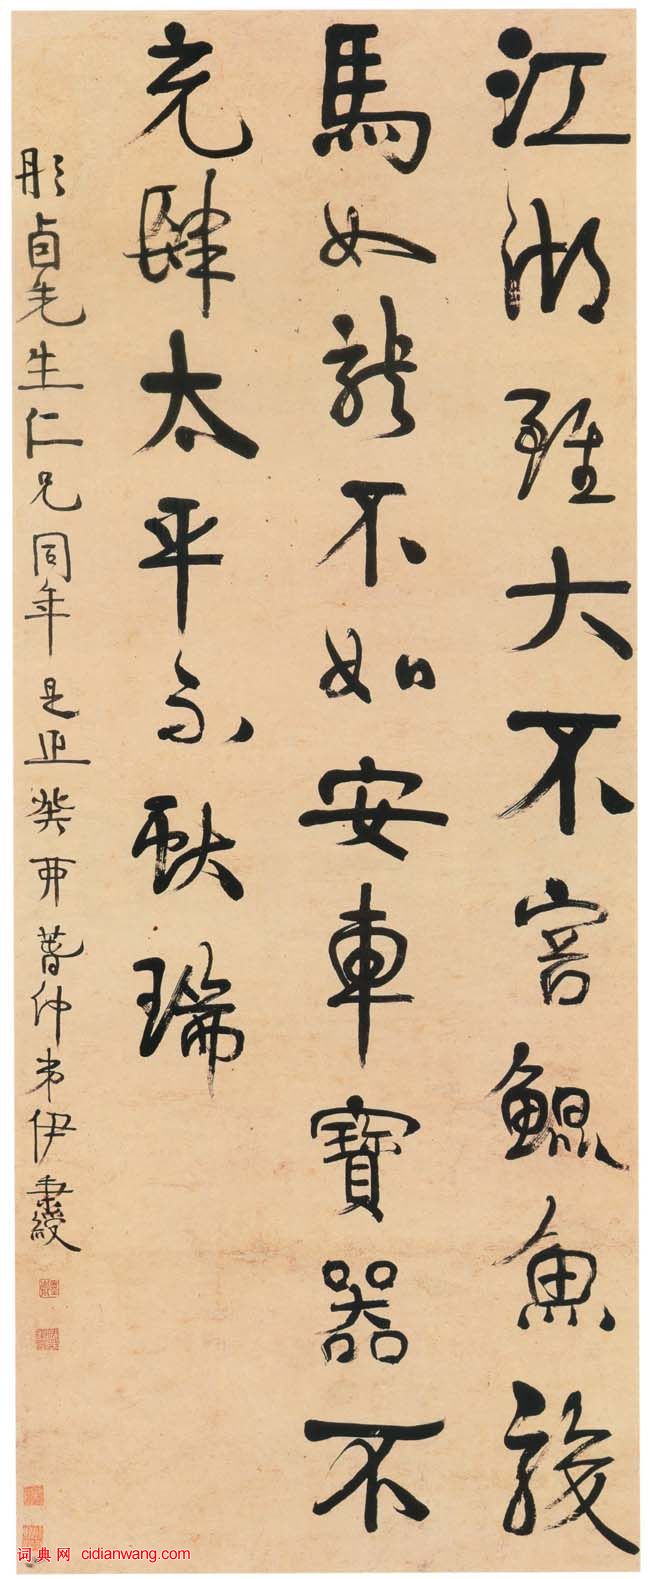 江湖雖大不容鯤魚駿
馬如龍不如安車寶器不
充肆太平瑞
彤卣先生仁兄同年是正癸酉萅仲弟伊秉綬
词典网 cidianwang.com